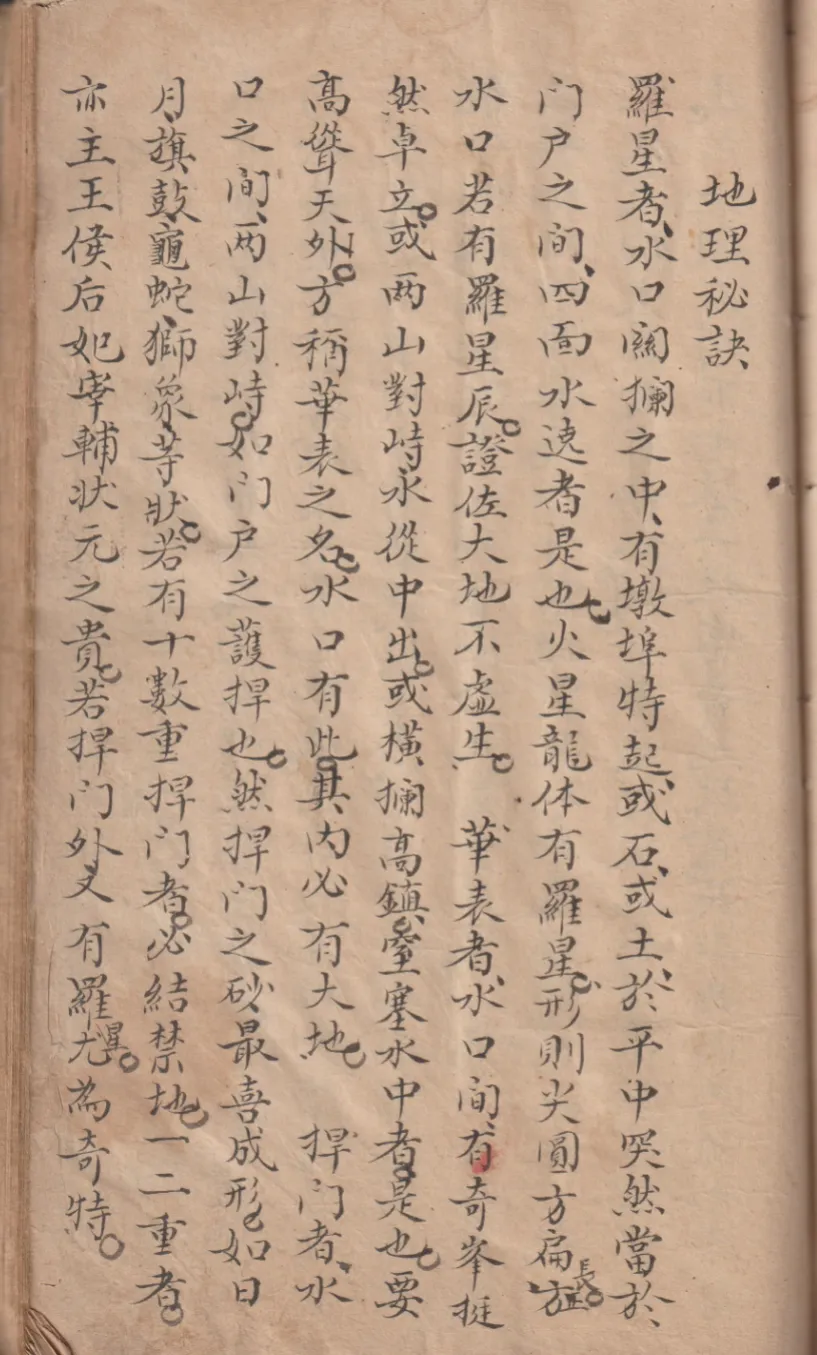 地理秘訣
羅星者、水口關攔之中、有墩埠特起、或石、或土、於平中突然當於
门户之间、四面水遶者是也。火星龍体有羅星。形則尖圓方扁長。
水口若有羅星辰。證佐大地不虚生。　華表者、水口间、有奇峯挺
然卓立。或两山對峙、水從中出。或橫攔高鎮、窒塞水中者。是也。要
高聳天外。方稱華表之名。水口有此。其内必有大地。　捍门者、水
口之间、两山對峙。如门户之護捍也。然捍门之砂、最喜成形。如日
月、旗鼓、龜蛇、獅象、等狀。若有十數重捍门者。必結禁地。一二重者。
亦主王侯、后妃、宰輔、状元之貴。若捍门外又有羅星。尤為奇特。